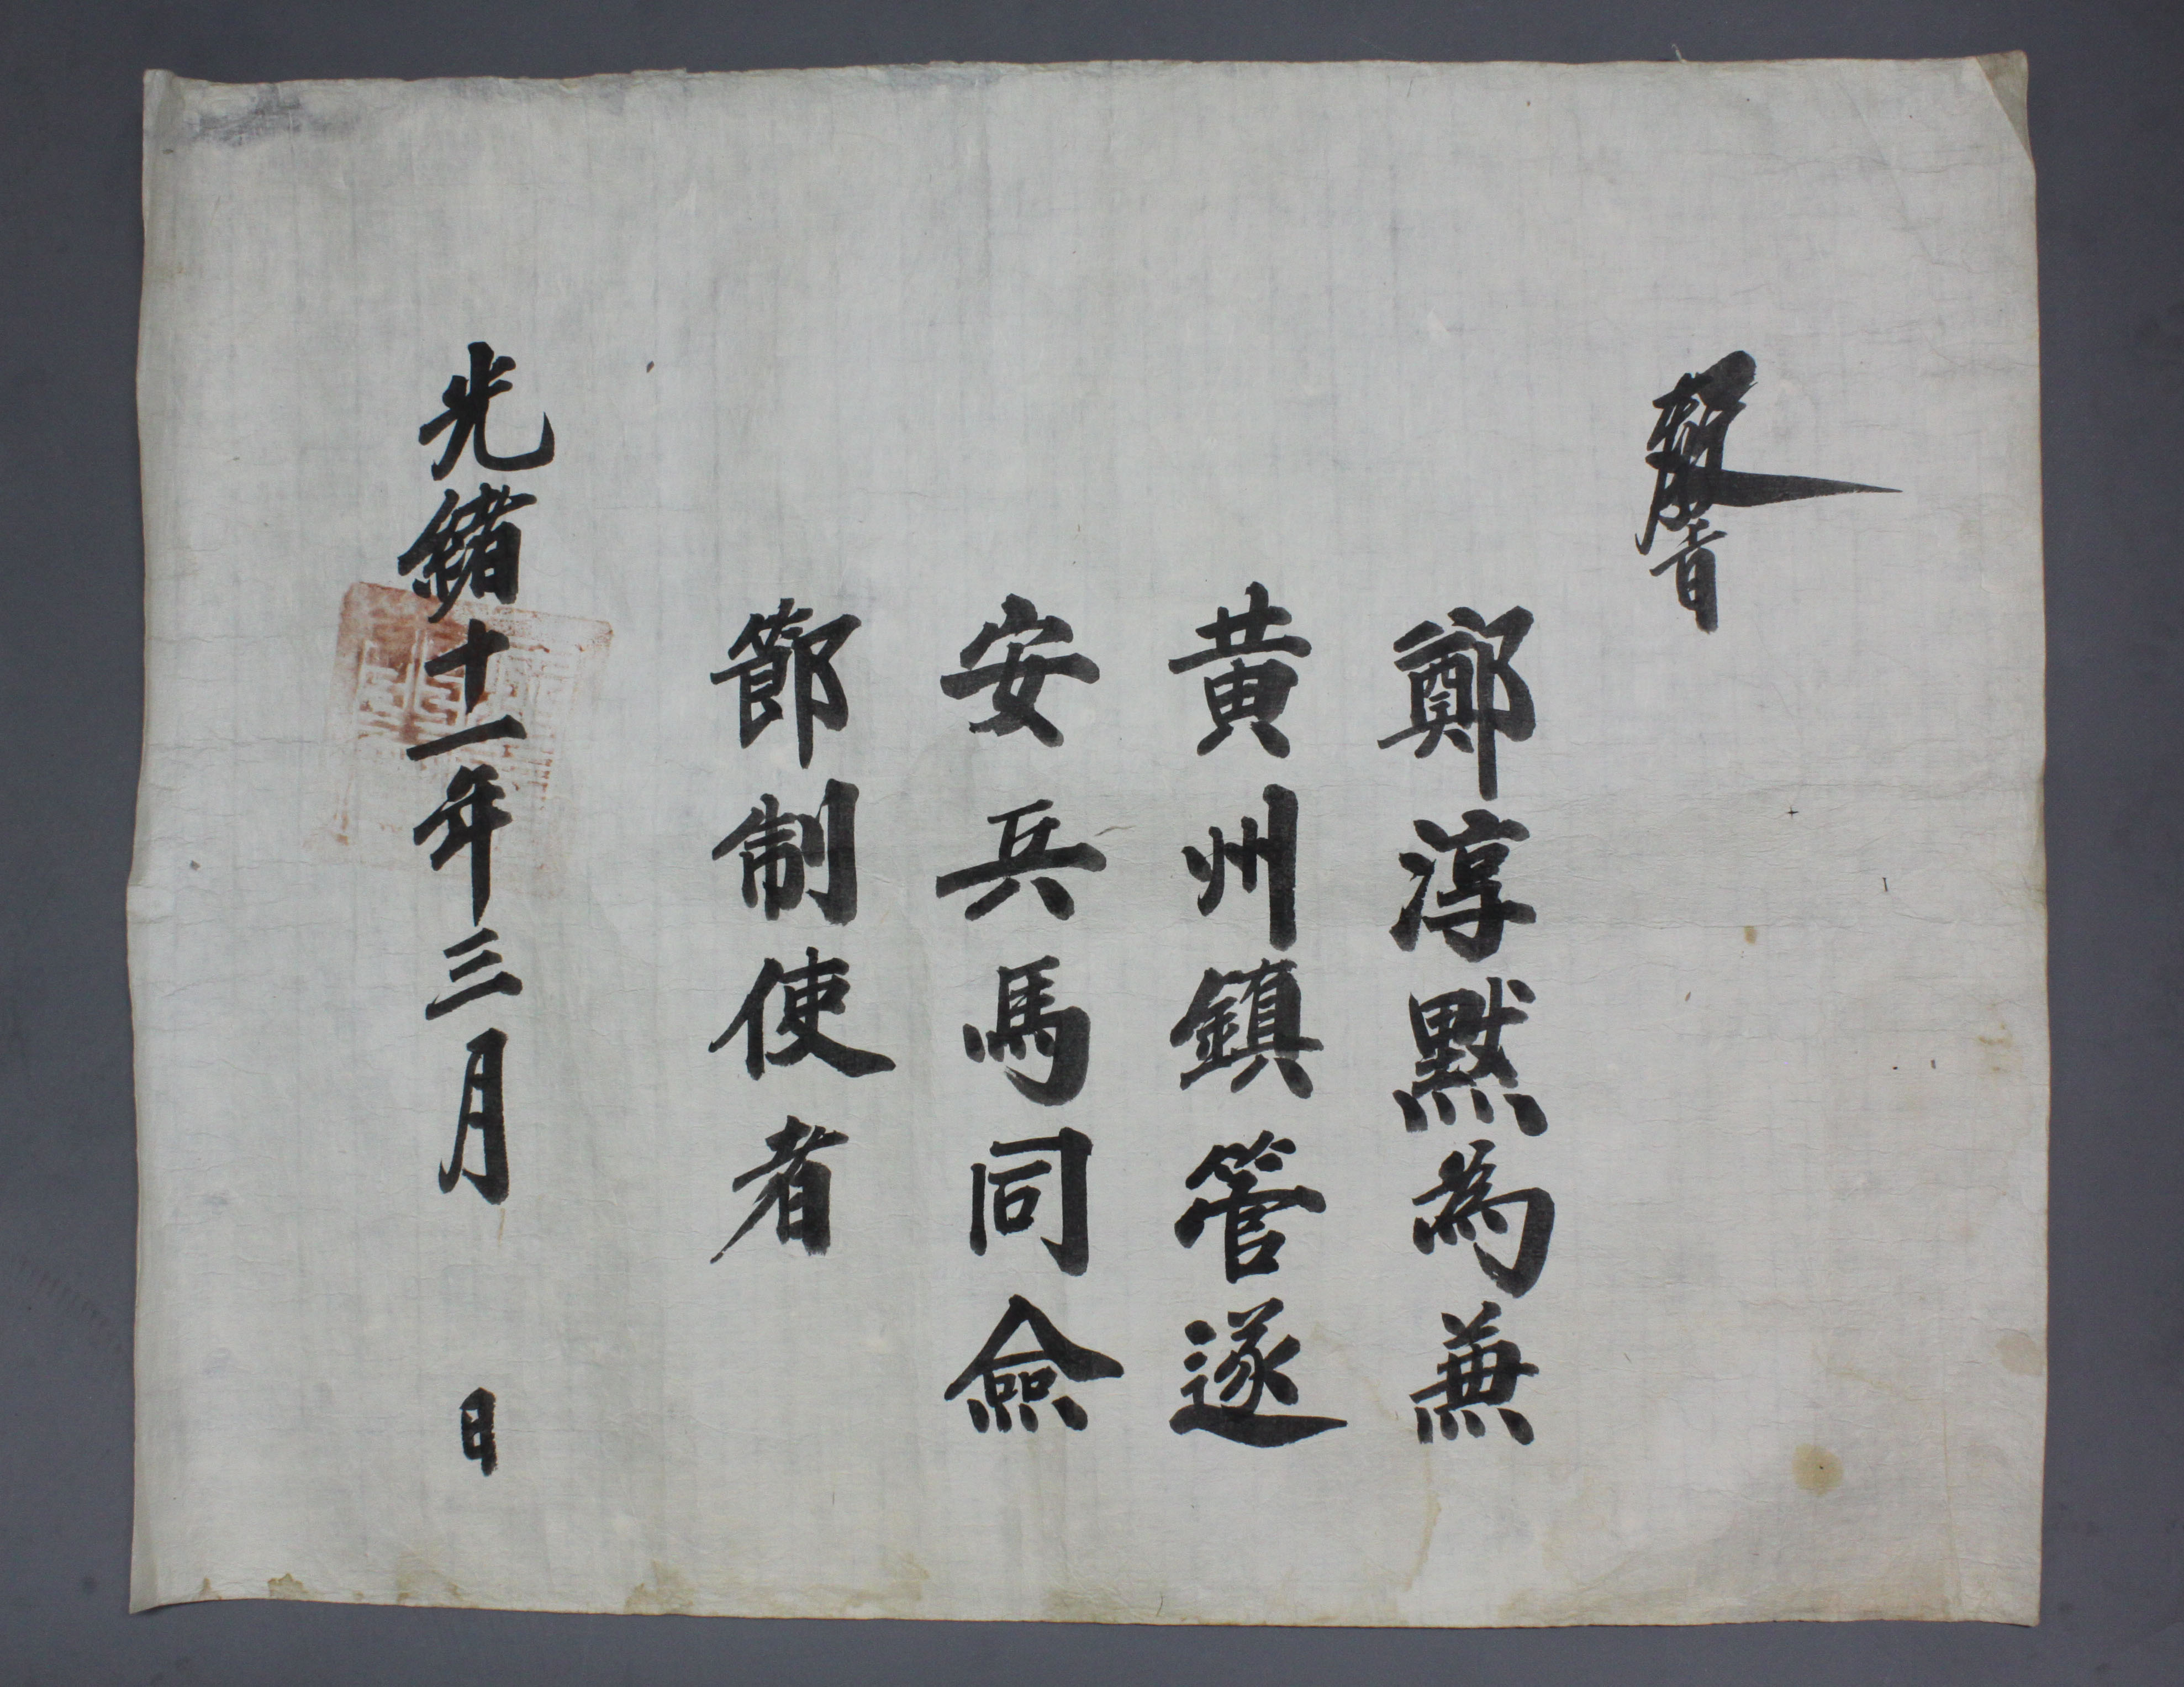 敎旨
鄭淳默爲兼
黃州鎮管遂
安兵馬同僉
節制使者
光緒十一年三月 日